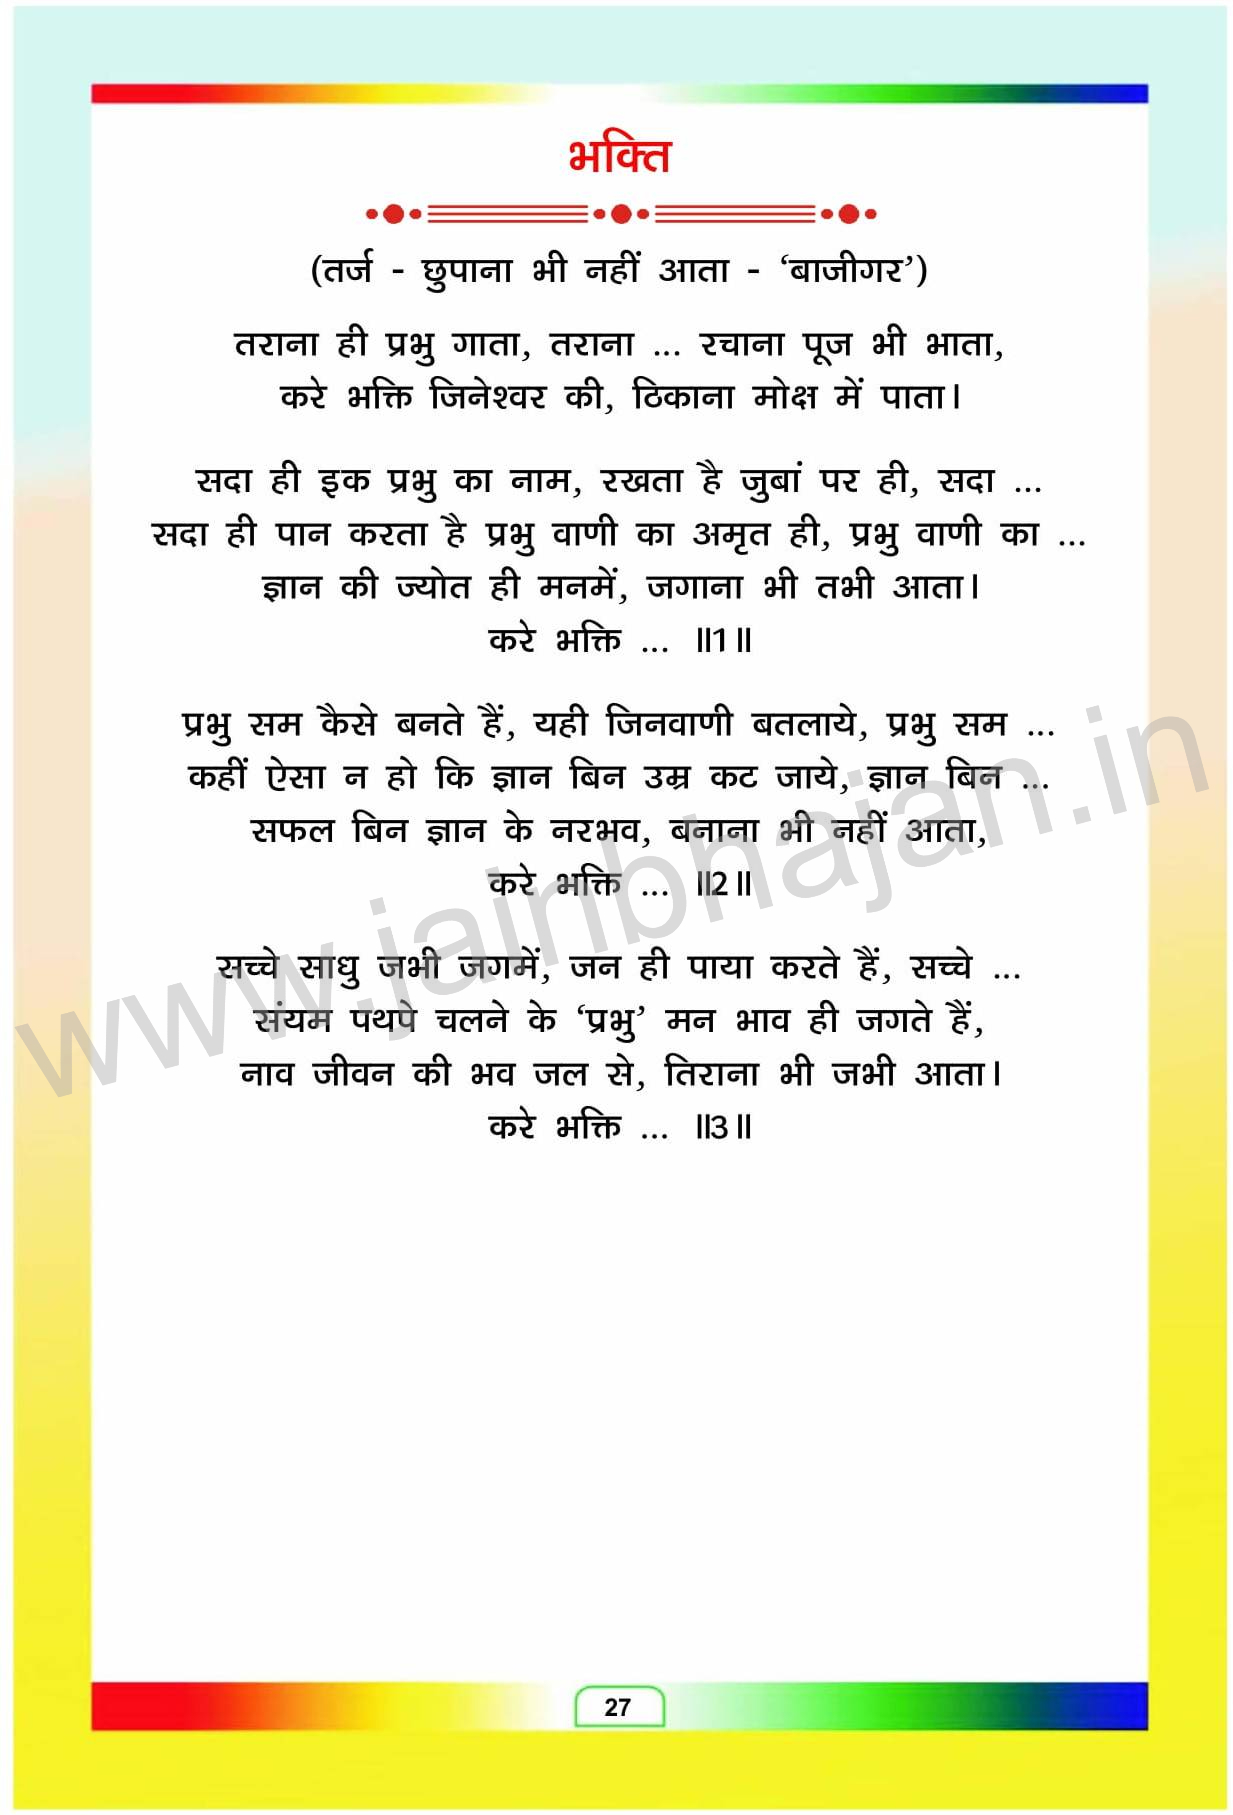 भक्ति
(तर्ज - छुपाना भी नहीं आता - ‘बाजीगर’)
तराना ही प्रभु गाता, तराना ... रचाना पूज भी भाता,
करे भक्ति जिनेश्वर की, ठिकाना मोक्ष में पाता।
सदा ही इक प्रभु का नाम, रखता है जुबां पर ही, सदा ...
सदा ही पान करता है प्रभु वाणी का अमृत ही, प्रभु वाणी का ...
ज्ञान की ज्योत ही मनमें, जगाना भी तभी आता।
करे भक्ति ... ॥1॥
प्रभु सम कैसे बनते हैं, यही जिनवाणी बतलाये, प्रभु सम ...
कहीं ऐसा न हो कि ज्ञान बिन उम्र कट जाये, ज्ञान बिन ...
सफल बिन ज्ञान के नरभव, बनाना भी नहीं आता,
करे भक्ति ... ॥2॥
सच्चे साधु जभी जगमें, जन ही पाया करते हैं, सच्चे ...
संयम पथपे चलने के ‘प्रभु’ मन भाव ही जगते हैं,
नाव जीवन की भव जल से, तिराना भी जभी आता।
करे भक्ति ... ॥3॥
www.jainbhajan.in
27